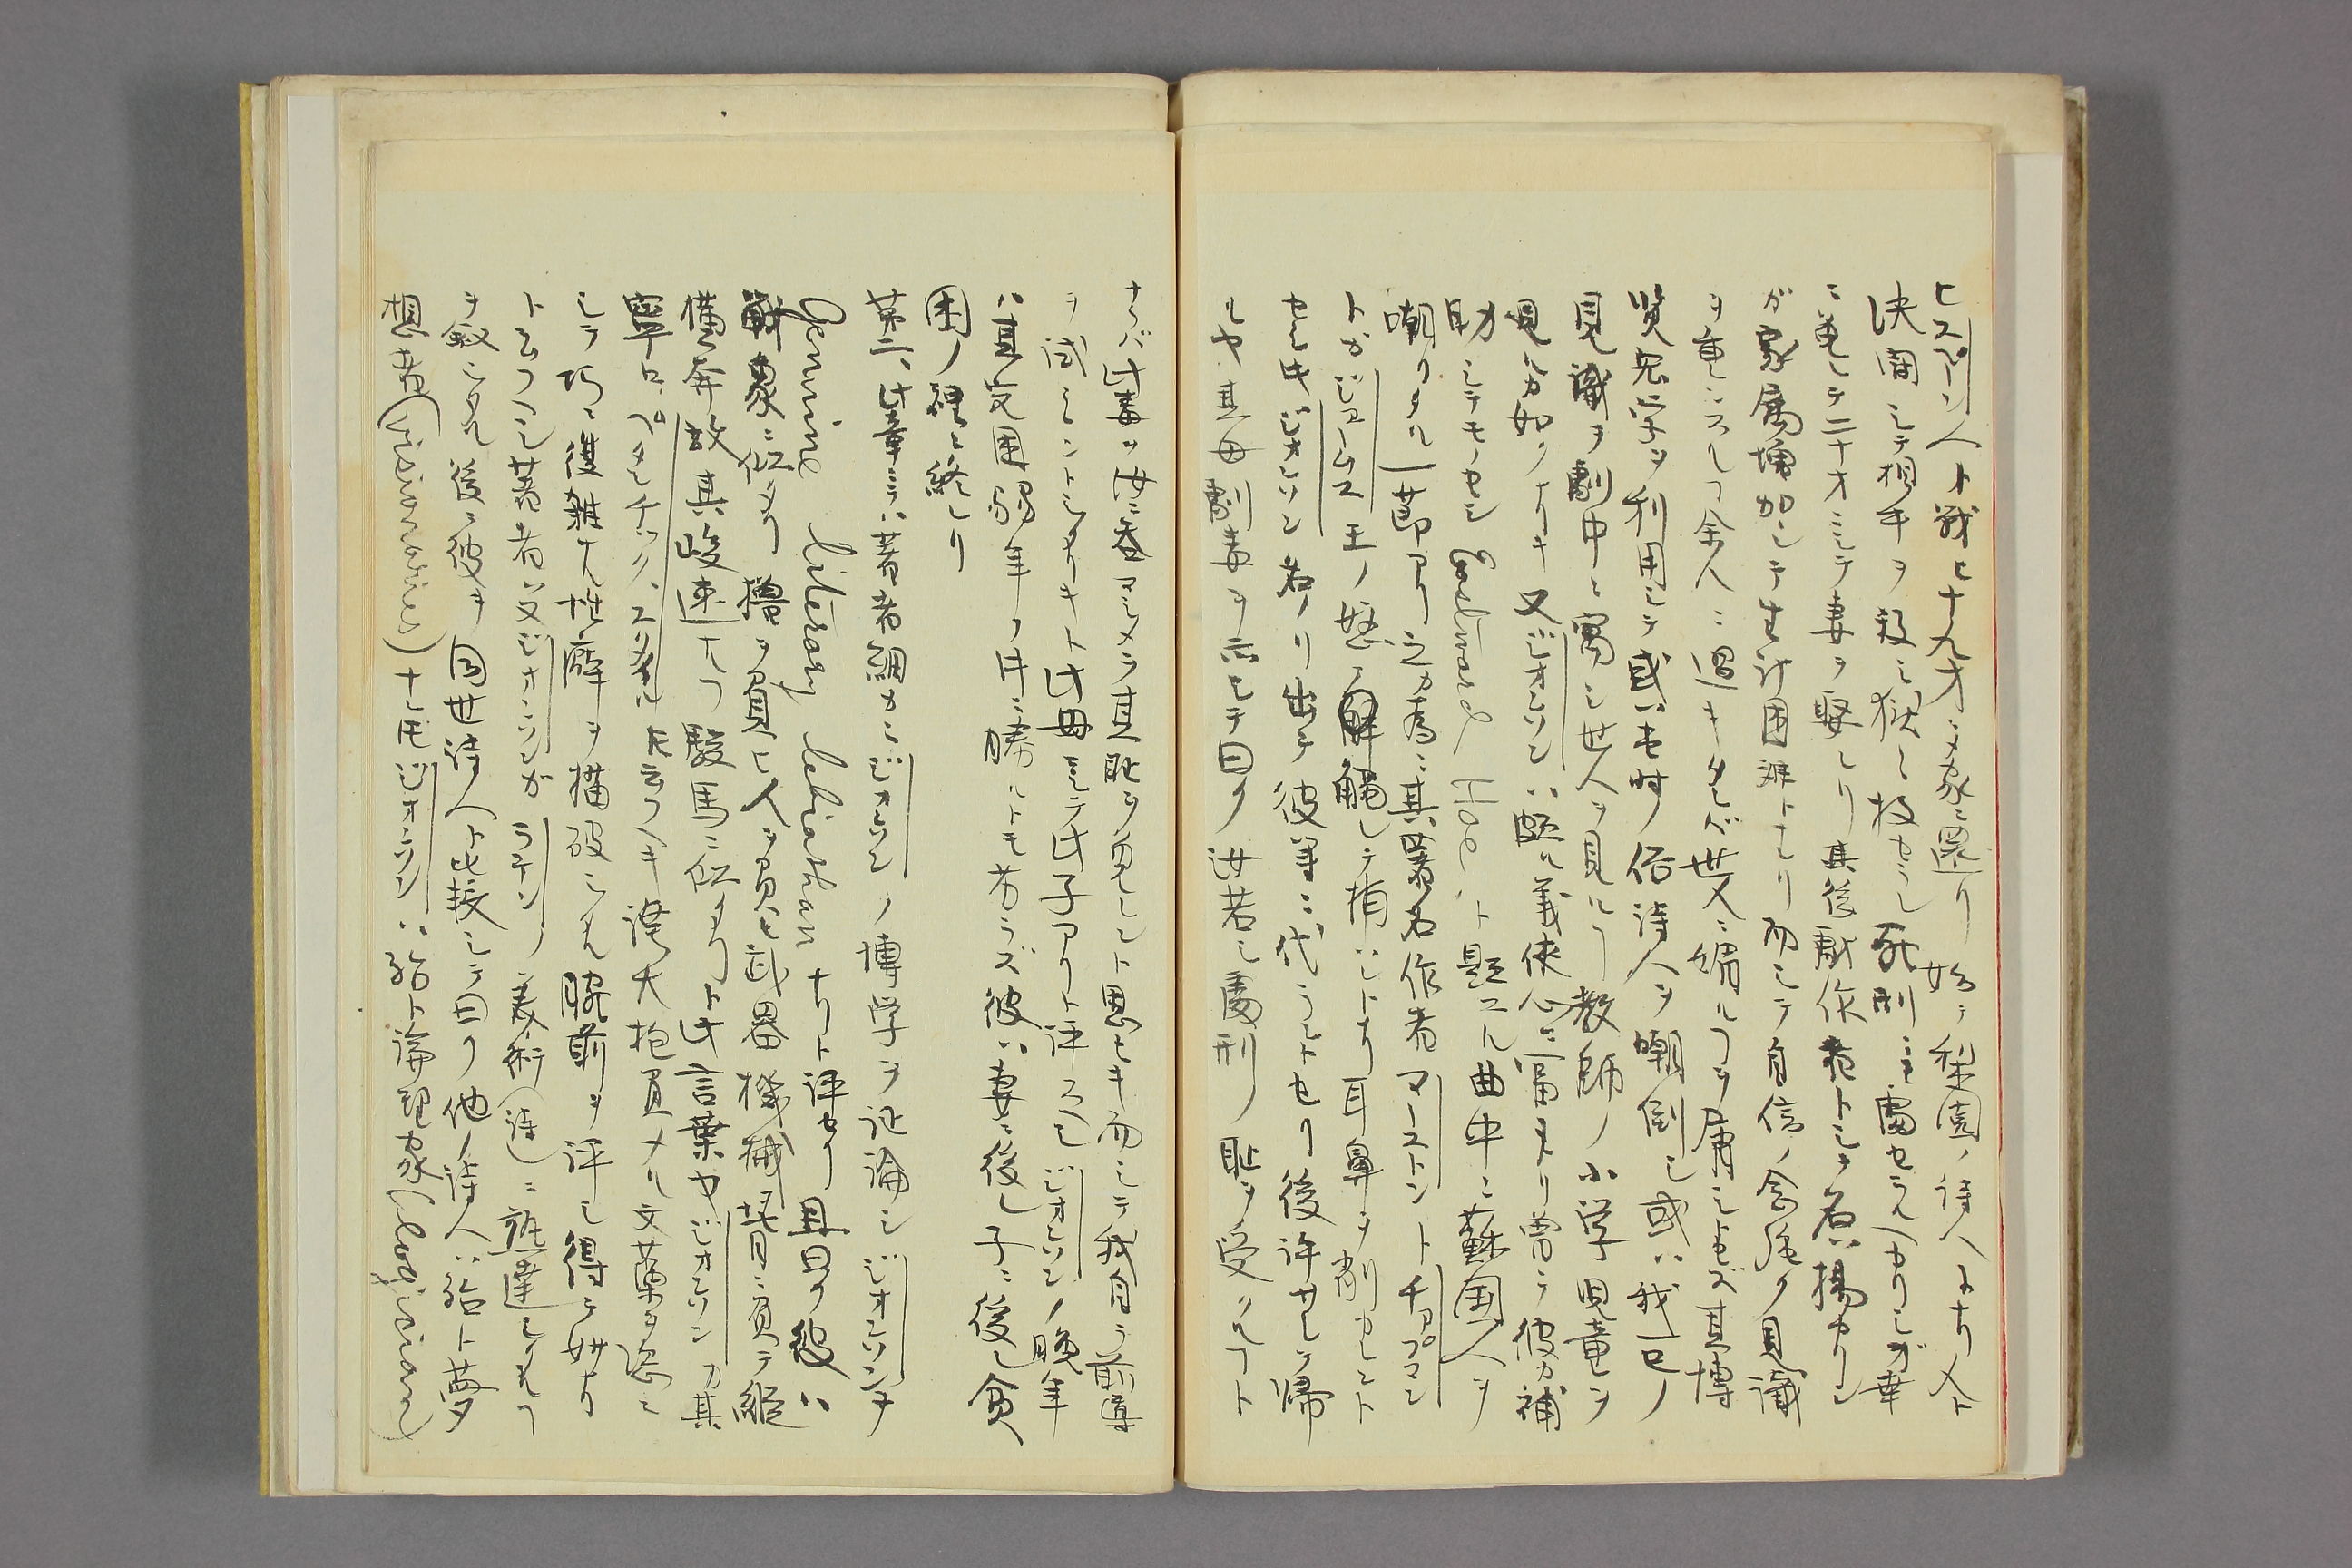 ヒスパーン人ト戦ヒ十九才ニメ家ニ還リ始テ梨園ノ詩人トナリ人ト
決闘シテ相手ヲ殺シ獄ニ投セラレ死刑ニモ處セラルヘカリシガ幸
ニ免レテ二十オニシテ妻ヲ娶レリ其後戯作者トシテ名ハ揚カリシ
ガ家属増加シテ生計困難トナリ而シテ自信ノ念強ク見識
ヲ重ンスルフ余人ニ過キタレバ世人ニ媚ルフヲ屑シトセズ其博
覧宏学ヲ利用シテ或ハ当時ノ俗詩人ヲ嘲倒シ或ハ我一己ノ
見識ヲ劇中ニ寓シ世人ヲ見ルフ教師ノ小学児童ヲ
見ルカ如クナリキ又ジオンソンハ頗ル義侠心ニ富メリ曾テ彼カ補
助シテモノセシ Eastward Hoe ト題スル曲中ニ蘇国人ヲ
嘲リタル一節アリ之カ為ニ其署名作者マーストントチアプマン
トガジエームス王ノ怒ニ觸レテ捕ハレトナリ耳鼻ヲ削カレント
セシ时ジオンソン名ノリ出テ彼等ニ代ラントセリ後許サレテ帰
ルヤ其母劇毒ヲ示シテ曰ク汝若シ處刑ノ耻ヲ受クルフト
ナラバ此毒ヲ汝ニ呑マシメテ其耻ヲ免レシント思ヒキ而シテ我自ラ前導
ヲ試ミントシタリキト此母ニシテ此子アリト評スベシジオンソンノ晩年
ハ其定困弱年ノ时ニ勝ルトモ劣ラズ彼ハ妻ニ後レ子ニ後レ貧
困ノ裡ニ終レリ
第二、此章ニテハ著者細カニジオンソンノ博学ヲ証論シジオンソンヲ
Genuine literary leviathan ナリト評セリ且曰ク彼ハ
戦象ニ似タリ櫓ヲ負ヒ人ヲ負ヒ武器機械皆背ニ負テ縦
横奔放其峻速ナルフ駿馬ニ似タリト此言葉ヤジオンソンカ其
寧ロペダンチツクニスタイルトモ云フヘキ浩大抱負メル文藻ヲ恣ニ
シテ巧ニ復雑ナル性癖ヲ描破シタル腕前ヲ評シ得テ妙ナリ
ト云フヘシ著者ハ又ジオンソンガラテンノ美術（詩）ニ熟達シタルフ
ヲ叙シタル後ニ彼ヲ同世詩人ト比較シテ曰ク他ノ詩人ハ殆ト夢
想者(visionaries)ナレ圧ジオンソンハ殆ト論理家(logician)